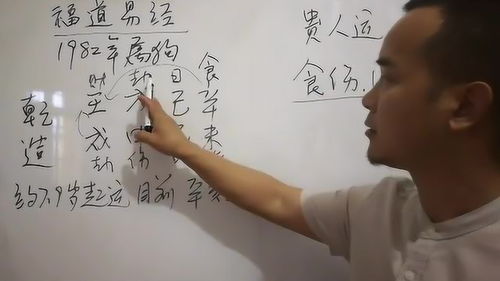 福道易经
1982年属狗
财 劫 日 食
乾 壬 己 辛
造 戌 未
劫 伤
约7.9岁起运 目前 辛
贵人运
食伤